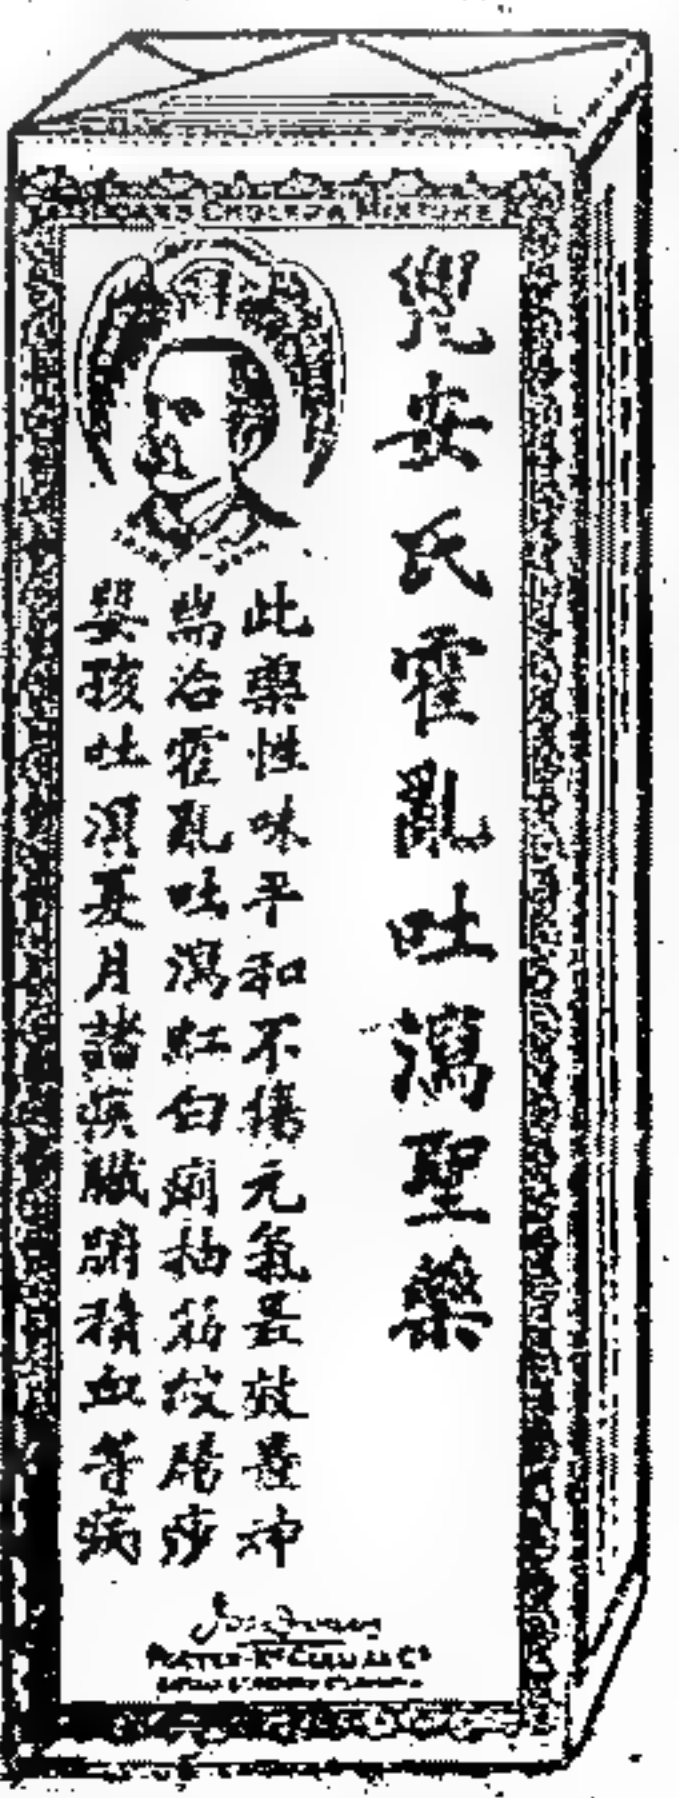 CHOLERA MIXTURE
兜安氏霍亂吐瀉聖藥
此藥性味平和不傷元氣最效最神
耑治霍亂吐瀉紅白痢抽筋絞腸痧
嬰孩吐瀉夏月諸疾臟腑積血等病
FOSTER-McCLELLAN Co